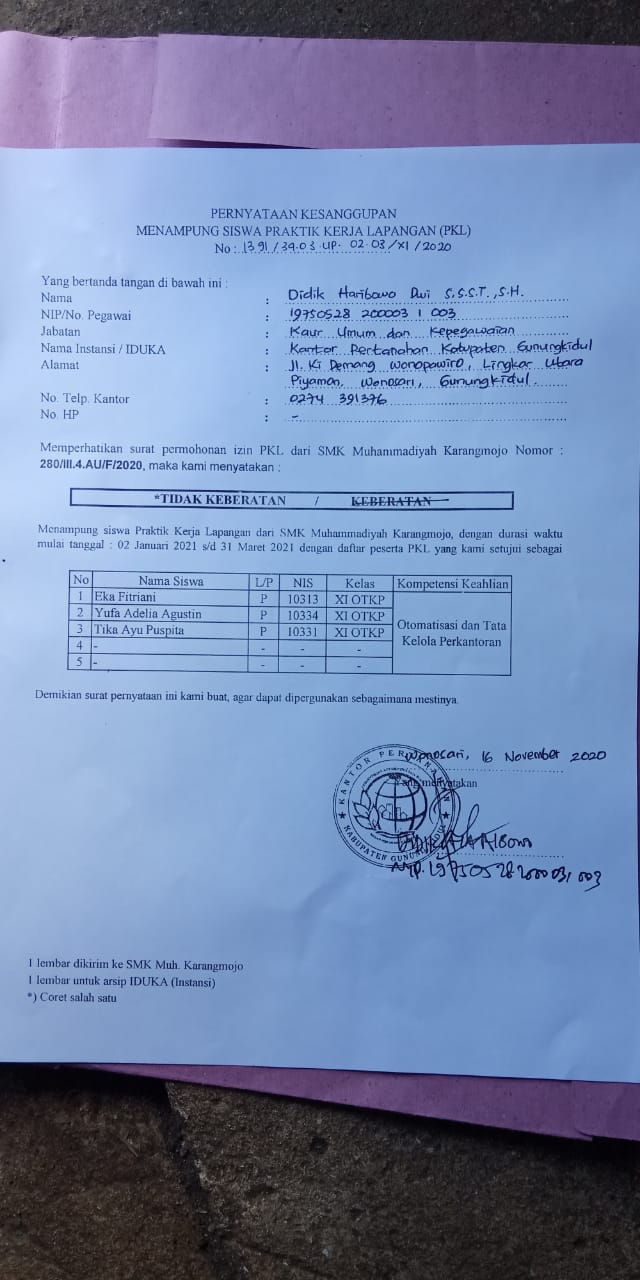 PERNYATAAN KESANGGUPAN
MENAMPUNG SISWA PRAKTIK KERJA LAPANGAN (PKL)
No : 1391 / 34.03 .UP. 02.03 / XI / 2020
Yang bertanda tangan di bawah ini :
Nama : Didik Haribowo Dwi S.S.S.T., S.H.
NIP/No. Pegawai : 19750528 200003 1 003
Jabatan : Kaur Umum dan Kepegawaian
Nama Instansi / IDUKA : Kantor Pertanahan Kabupaten Gunungkidul
Alamat : Jl. Ki Demang Wonopawiro, Lingkar Utara
Piyaman, Wonosari, Gunungkidul.
No. Telp. Kantor : 0274 391376
No. HP : -
Memperhatikan surat permohonan izin PKL dari SMK Muhammadiyah Karangmojo Nomor :
280/III.4.AU/F/2020, maka kami menyatakan :
*TIDAK KEBERATAN / KEBERATAN
Menampung siswa Praktik Kerja Lapangan dari SMK Muhammadiyah Karangmojo, dengan durasi waktu
mulai tanggal : 02 Januari 2021 s/d 31 Maret 2021 dengan daftar peserta PKL yang kami setujui sebagai
No Nama Siswa L/P NIS Kelas Kompetensi Keahlian
1 Eka Fitriani P 10313 XI OTKP
2 Yufa Adelia Agustin P 10334 XI OTKP
3 Tika Ayu Puspita P 10331 XI OTKP
Otomatisasi dan Tata
Kelola Perkantoran
4 - - - -
5 - - - -
Demikian surat pernyataan ini kami buat, agar dapat dipergunakan sebagaimana mestinya.
Wonosari, 16 November 2020
Yang menyatakan
KANTOR PERTANAHAN
KABUPATEN GUNUNGKIDUL
NIP. 19750528 200003 1 003
1 lembar dikirim ke SMK Muh. Karangmojo
1 lembar untuk arsip IDUKA (Instansi)
*) Coret salah satu